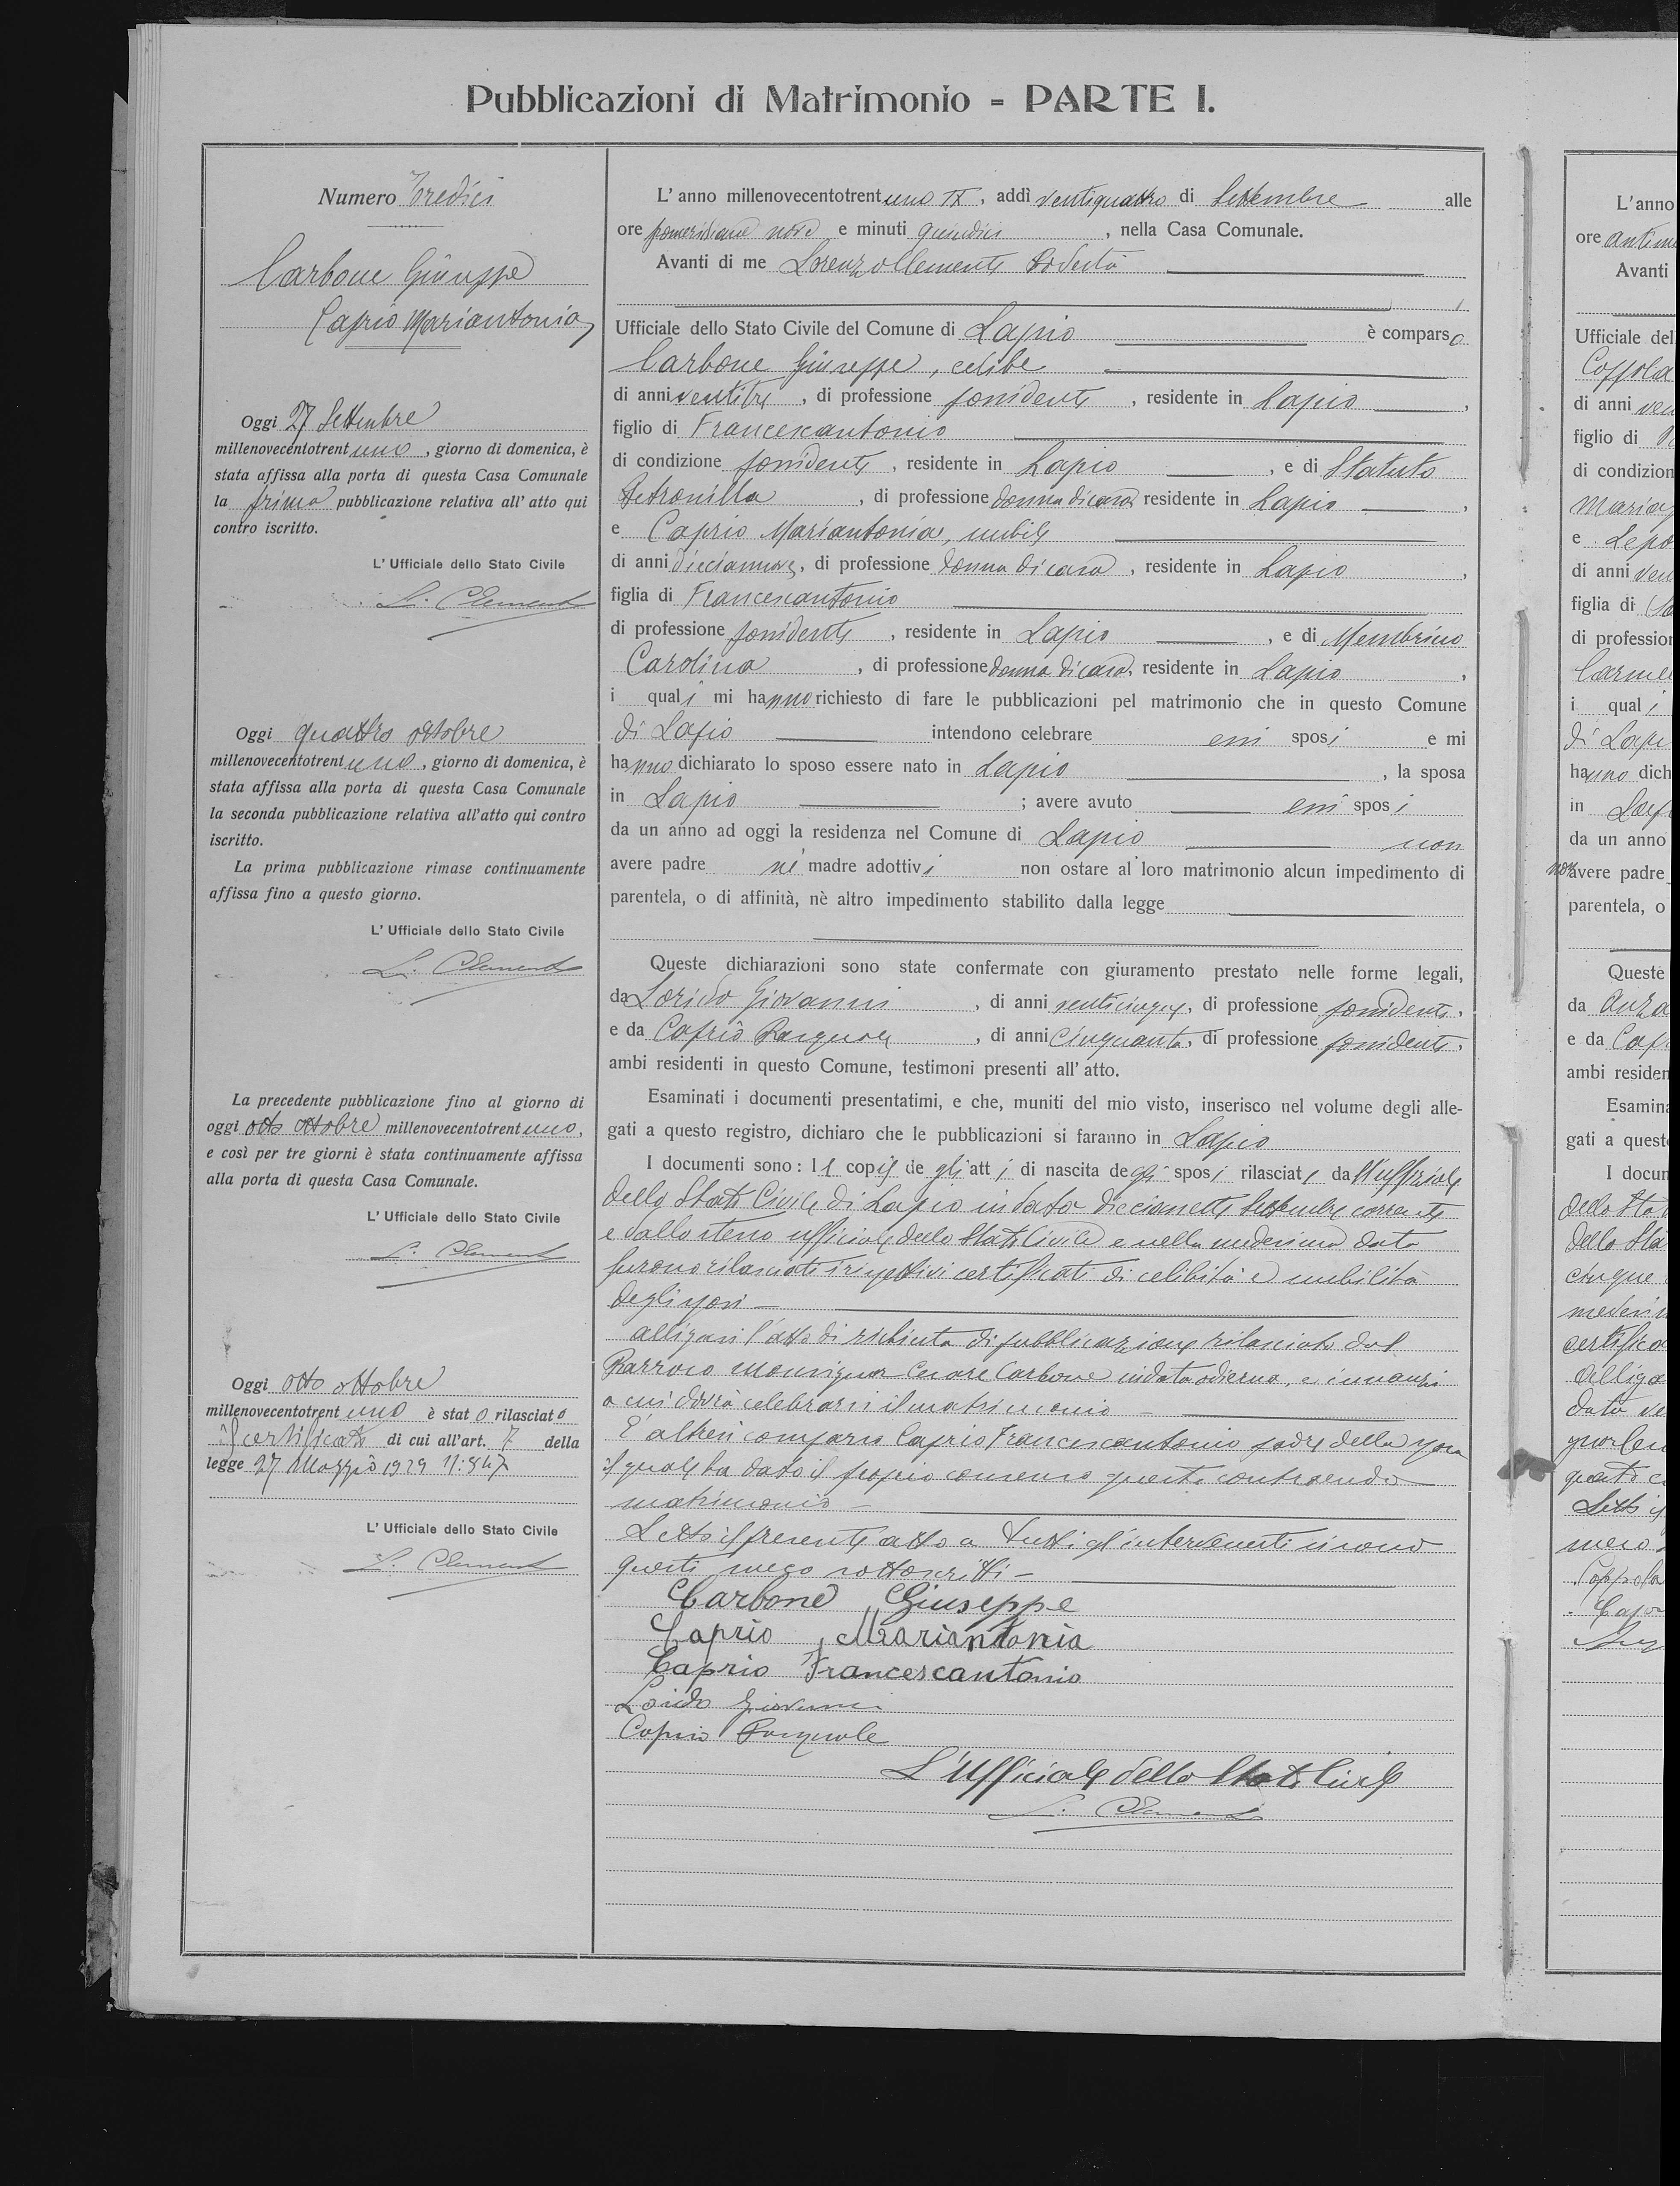 Pubblicazioni di Matrimonio = PARTE I.
Numero Tredici
Carbone Giuseppe
Caprio Mariantonia
Oggi 27 Settembre
millenovecentotrentuno, giorno di domenica, è
stata affissa alla porta di questa Casa Comunale
la prima pubblicazione relativa all' atto qui
contro iscritto.
L' Ufficiale dello Stato Civile
L. Clemente
Oggi quattro ottobre
millenovecentotrentuno, giorno di domenica, è
stata affissa alla porta di questa Casa Comunale
la seconda pubblicazione relativa all'atto qui contro
iscritto.
La prima pubblicazione rimase continuamente
affissa fino a questo giorno.
L' Ufficiale dello Stato Civile
L. Clemente
La precedente pubblicazione fino al giorno di
oggi otto ottobre millenovecentotrentuno,
e così per tre giorni è stata continuamente affissa
alla porta di questa Casa Comunale.
L' Ufficiale dello Stato Civile
L. Clemente
Oggi otto ottobre
millenovecentotrentuno è stato rilasciato
il certificato di cui all'art. 7 della
legge 27 Maggio 1929 N: 847
L' Ufficiale dello Stato Civile
L. Clemente
L' anno millenovecentotrentuno IX, addì ventiquattro di Settembre alle
ore pomeridiane nove e minuti quindici, nella Casa Comunale.
Avanti di me Lorenzo Clemente Podestà
Ufficiale dello Stato Civile del Comune di Lapio è comparso
Carbone Giuseppe, celibe
di anni ventitre, di professione possidente, residente in Lapio,
figlio di Francescantonio
di condizione possidente, residente in Lapio, e di Statuto
Petronilla, di professione donna di casa, residente in Lapio,
e Caprio Mariantonia, nubile
di anni diciannove, di professione donna di casa, residente in Lapio,
figlia di Francescantonio
di professione possidente, residente in Lapio, e di Membrino
Carolina, di professione donna di casa, residente in Lapio,
i quali mi hanno richiesto di fare le pubblicazioni pel matrimonio che in questo Comune
di Lapio intendono celebrare essi sposi e mi
hanno dichiarato lo sposo essere nato in Lapio, la sposa
in Lapio; avere avuto essi sposi
da un anno ad oggi la residenza nel Comune di Lapio non
avere padre nè madre adottivi non ostare al loro matrimonio alcun impedimento di
parentela, o di affinità, nè altro impedimento stabilito dalla legge
Queste dichiarazioni sono state confermate con giuramento prestato nelle forme legali,
da Lorido Giovanni, di anni venticinque, di professione possidente,
e da Caprio Pasquale, di anni cinquanta, di professione possidente,
ambi residenti in questo Comune, testimoni presenti all' atto.
Esaminati i documenti presentatimi, e che, muniti del mio visto, inserisco nel volume degli alle-
gati a questo registro, dichiaro che le pubblicazioni si faranno in Lapio
I documenti sono: le copie degli atti di nascita degli sposi rilasciate dall'ufficiale
dello Stato Civile di Lapio in data diciannette Settembre corrente
e dallo stesso ufficiale dello Stato Civile e nella medesima data
furono rilasciati i rispettivi certificati di celibità e nubilità
degli sposi
Alligasi l'atto di richiesta di pubblicazione rilasciato dal
Parroco Monsignor Cesare Carbone in data odierna, e innanzi
a cui dovrà celebrarsi il matrimonio
È altresì comparso Caprio Francescantonio padre della sposa
il quale ha dato il proprio consenso questo contraendo
matrimonio
Letto il presente atto a tutti gl'intervenuti si sono
questi meco sottoscritti
Carbone Giuseppe
Caprio Mariantonia
Caprio Francescantonio
Lorido Giovanni
Caprio Pasquale
L'Ufficiale dello Stato Civile
L. Clemente
L'anno
ore antim
Avanti
Ufficiale del
Coppola
di anni ven
figlio di
di condizion
Mariag
e Lepo
di anni ven
figlia di
di profession
Carmel
i quali
di Lapi
hanno dich
in Lap
da un anno
non avere padre
parentela, o
Queste
da Auza
e da Cap
ambi residen
Esamina
gati a quest
I docum
dello Stat
dello Sta
cinque
medesim
certifica
Alliga
data ve
questo c
Letto il
meco
Coppola
Capr